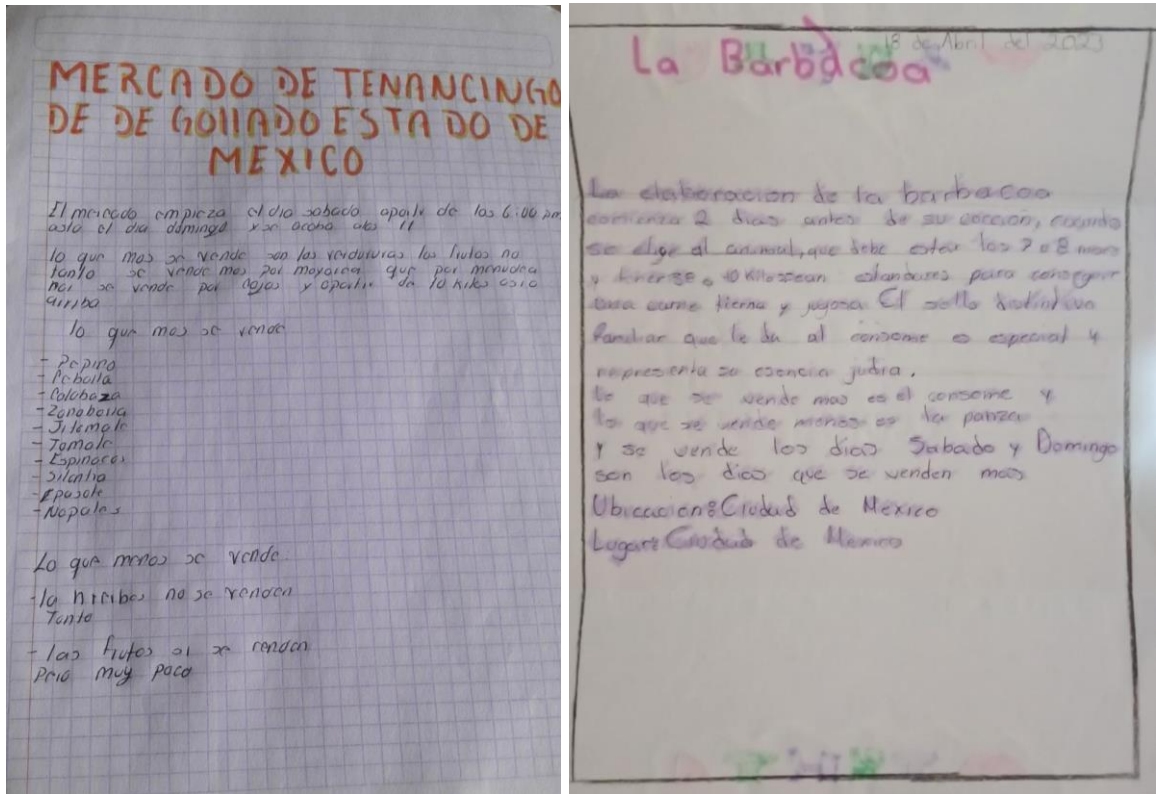 MERCADO DE TENANCINGO
DE DE GOllADO ESTADO DE
MEXICO
El mercado empieza el dia sabado apartir de las 6:00 pm
asta el dia domingo y se acaba alas 11
lo que mas se vende son las verduturas las frutas no
tanto se vende mas por mayorea que por menudea
se vende por cajas y apartir de 10 kilos asia
arriba
lo que mas se vende
- Pepino
- Calabaza
- Zanahoria
- Jitomate
- Tomate
- Espinacas
- Silantia
- Epasote
- Nopales
Lo que menos se vende
- la no se venden
Tanto
- las frutas si se venden
Pero muy poco
18 de Abril del 2023
La Barbacoa
La elaboracion de la barbacoa
comienza 2 dias antes de su coccion, cuando
se elige al animal, que debe estar los 7 o 8 mese
y 40 kilos sean estandares para conseguir
esa carne tierna y jugosa El sello distintivo
Familiar que le da al consome es especial y
representa su esencia judia.
lo que se vende mas es el consome y
lo que se vende menos es la panza
Y se vende los dias Sabado y Domingo
son los dias que se venden mas
Ubicacion: Ciudad de Mexico
Lugar: Ciudad de Mexico